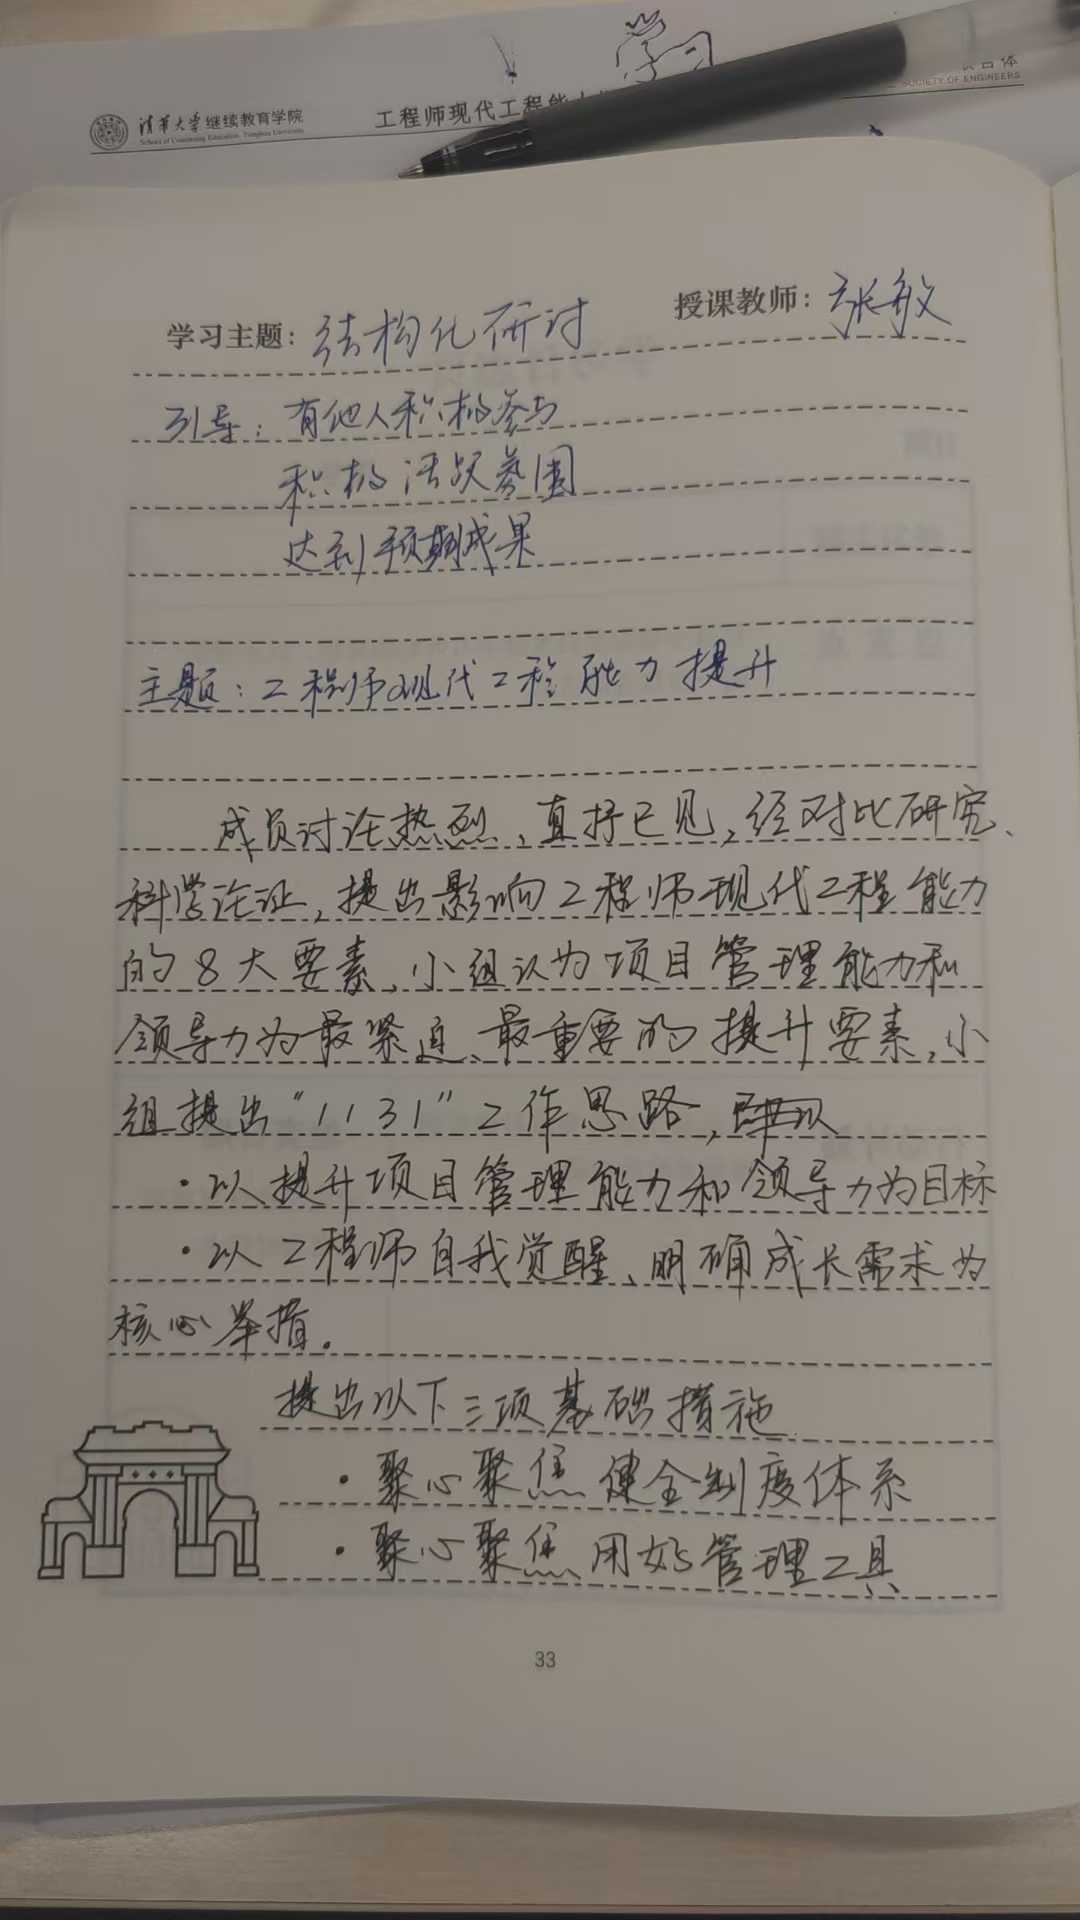 学习
清华大学继续教育学院
School of Continuing Education, Tsinghua University
工程师现代工程能
合体
SOCIETY OF ENGINEERS
学习主题：结构化研讨
授课教师：张敏
引导：有他人积极参与
积极活跃氛围
达到预期成果
主题：工程师现代工程能力提升
成员讨论热烈，直抒己见，经对比研究、
科学论证，提出影响工程师现代工程能力
的8大要素，小组认为项目管理能力和
领导力为最紧迫、最重要的提升要素，小
组提出“1131”工作思路，
·以提升项目管理能力和领导力为目标
·以工程师自我觉醒、明确成长需求为
核心举措。
提出以下三项基础措施
·聚心聚焦健全制度体系
·聚心聚焦用好管理工具
33